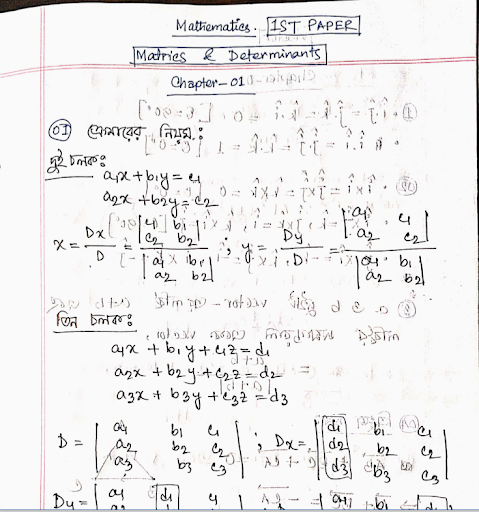 Mathematics. 1ST PAPER
Matrics & Determinants
Chapter-01
01 ক্রেমারের নিয়ম:
দুই চলক:
a₁x + b₁y = c₁
a₂x + b₂y = c₂
x = Dx/D = |c₁ b₁; c₂ b₂| / |a₁ b₁; a₂ b₂| ; y = Dy/D = |a₁ c₁; a₂ c₂| / |a₁ b₁; a₂ b₂|
তিন চলক:
a₁x + b₁y + c₁z = d₁
a₂x + b₂y + c₂z = d₂
a₃x + b₃y + c₃z = d₃
D = |a₁ b₁ c₁; a₂ b₂ c₂; a₃ b₃ c₃| ; Dx = |d₁ b₁ c₁; d₂ b₂ c₂; d₃ b₃ c₃|
Dy = | a₁ d₁ c₁ = | a₁ b₁ d₁